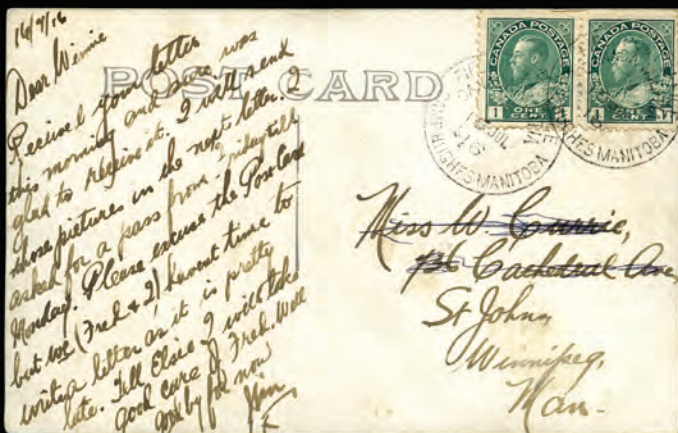 16/7/16
Dear Winnie
Received your letter
this morning and sure was
glad to receive it. I will send
those pictures in the next letter. I
asked for a pass from Friday till
Monday. Please excuse the Post Card
but we (Fred & I) havent time to
write a letter as it is pretty
late. Tell Elsie I will take
good care of Fred. Well
good by for now
POST CARD
CANADA POSTAGE
1 ONE CENT
CANADA POSTAGE
1 CENT
JUL
16
CAMP HUGHES MANITOBA
HUGHES MANITOBA
Miss W. Currie,
Cathedral Ave
St Johns
Winnipeg,
Man.